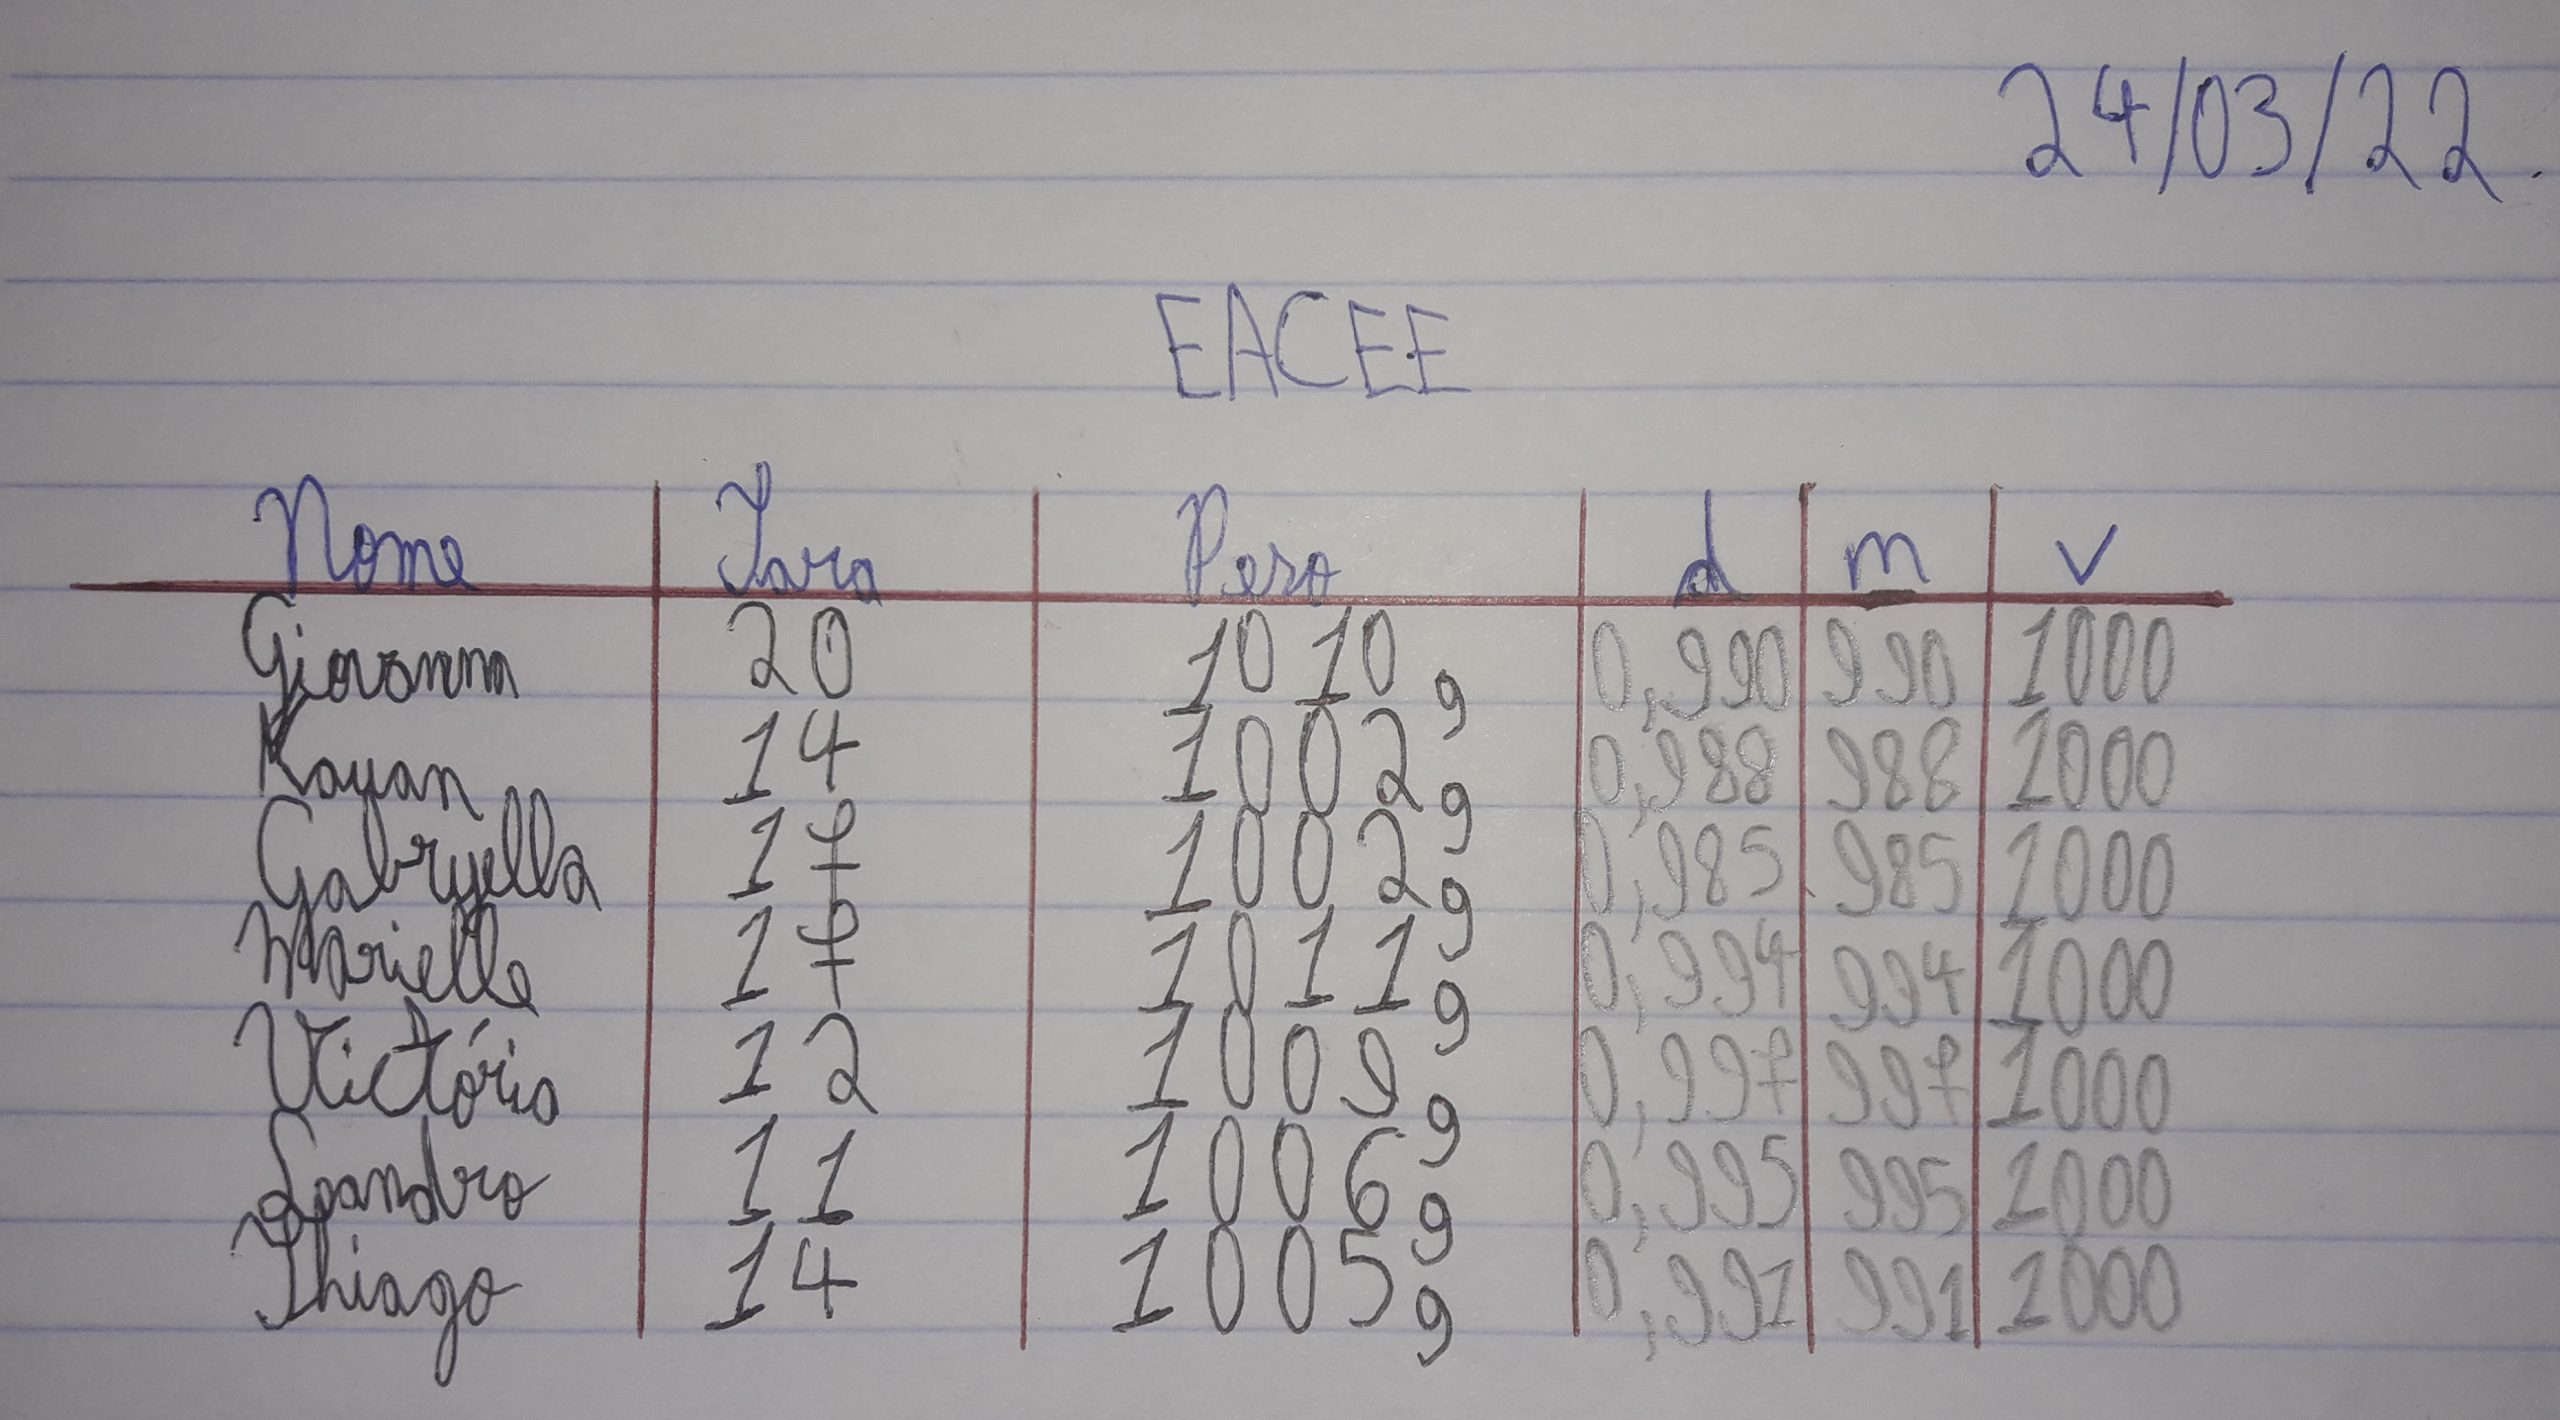 24/03/22.
EACEE
Nome Tara Peso d m v
Giovanna 20 1010g 0,990 990 1000
Kauan 14 1002g 0,988 988 1000
Gabryella 17 1002g 0,985 985 1000
Marielle 17 1011g 0,994 994 1000
Victória 12 1009g 0,997 997 1000
Leandro 11 1006g 0,995 995 1000
Thiago 14 1005g 0,991 991 1000